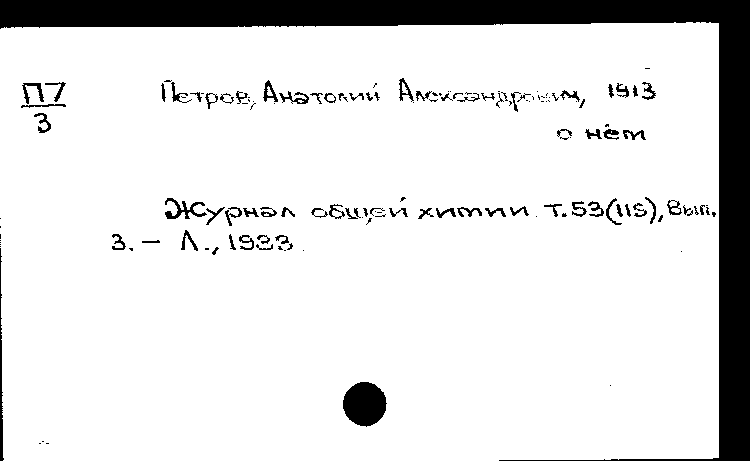 П7
3
Петров, Анатолий Александрович, 1913
о нём
Журнал общей химии. Т.53(115), Вып.
3. – Л., 1983